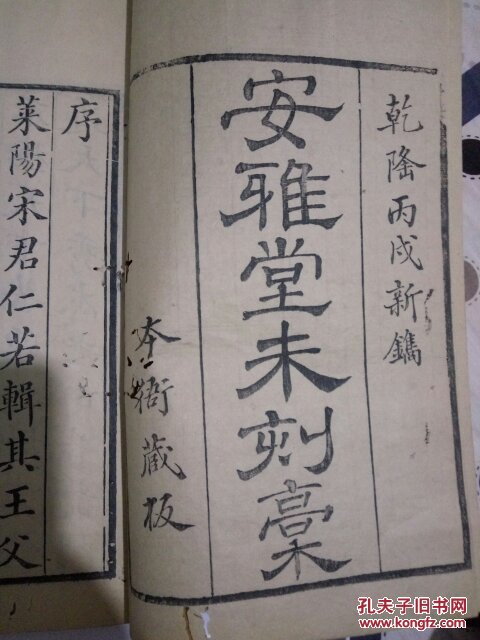 乾隆丙戌新鐫
安雅堂未刻稾
本衙藏板
序
萊陽宋君仁若輯其王父
孔夫子旧书网
www.kongfz.com